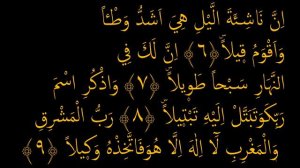 اِنَّ نَاشِئَةَ الَّيْلِ هِيَ اَشَدُّ وَطْـًٔا
وَّاَقْوَمُ قِيْلًاؕ ﴿٦﴾ اِنَّ لَكَ فِي
النَّهَارِ سَبْحًا طَوِيْلًاؕ ﴿٧﴾ وَاذْكُرِ اسْمَ
رَبِّكَ وَتَبَتَّلْ اِلَيْهِ تَبْتِيْلًاؕ ﴿٨﴾ رَبُّ الْمَشْرِقِ
وَالْمَغْرِبِ لَآ اِلٰهَ اِلَّا هُوَ فَاتَّخِذْهُ وَكِيْلًا ﴿٩﴾